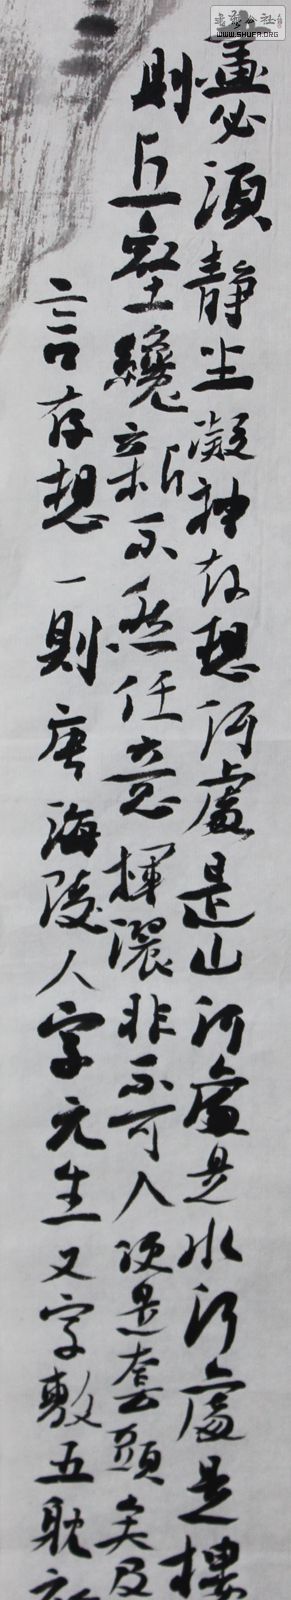 書法公社
WWW.SHUFA.ORG
畫必須靜坐凝神存想何處是山何處是水何處是樓
則丘壑纔新不然任意揮灑非不可人便是套頭矣及
言存想一則唐海陵人字元生又字敷五耽